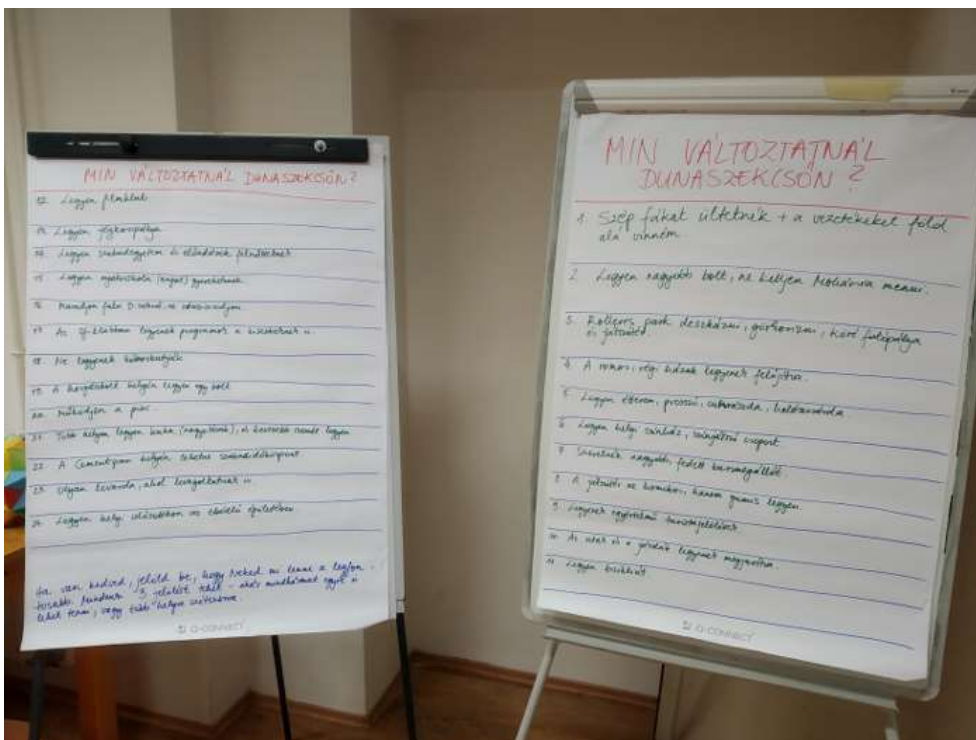 MIN VÁLTOZTATNÁL DUNASZEKCSŐN?
12. Legyen filmklub
13. Legyen jégkorcsolya
14. Legyen szabadegyetem és előadások felnőtteknek
15. Legyen nyelviskola (angol) gyerekeknek
16. Maradjon falu D.szekcső, ne városiasodjon
17. Az If. klubban legyenek programok a kicsiknek is.
18. Ne legyenek
19. A horgászbolt helyén legyen egy bolt
20. Működjön a piac
21. Több helyen legyen kuka (nagy méretű), és kevesebb szemét legyen
22. A Cementipari helyén lehetne szabadidőközpont
23. Olyan levarda, ahol levágottak is
24. Legyen helyi idősotthon az ebédlő épületében
Ha van kedved, jelöld be, hogy Neked mi lenne a legfon-
tosabb. Mindenki 3 jelölést tehet - akár mindhármat egyet is
lehet tenni, vagy több helyre szétosztva.
Q-CONNECT
MIN VÁLTOZTATNÁL
DUNASZEKCSŐN?
1. Szép fákat ültetnék + a vezetékeket föld
alá vinném.
2. Legyen nagyobb bolt, ne kelljen Mohácsra menni.
3. Rolleres park deszkázni, görkorizni, köré futópálya
és játszótér
4. A romos, régi házak legyenek felújítva.
5. Legyen étterem, presszó, cukrászda, halászcsárda
6. Legyen helyi színház, színjátszó csoport
7. Szeretnék nagyobb, fedett buszmegállót.
8. A játszótér ne homokos, hanem gumis legyen.
9. Legyenek egyértelmű turistajelzések
10. Az utak és a járdák legyenek megjavítva.
11. Legyen bicikliút
Q-CONNECT